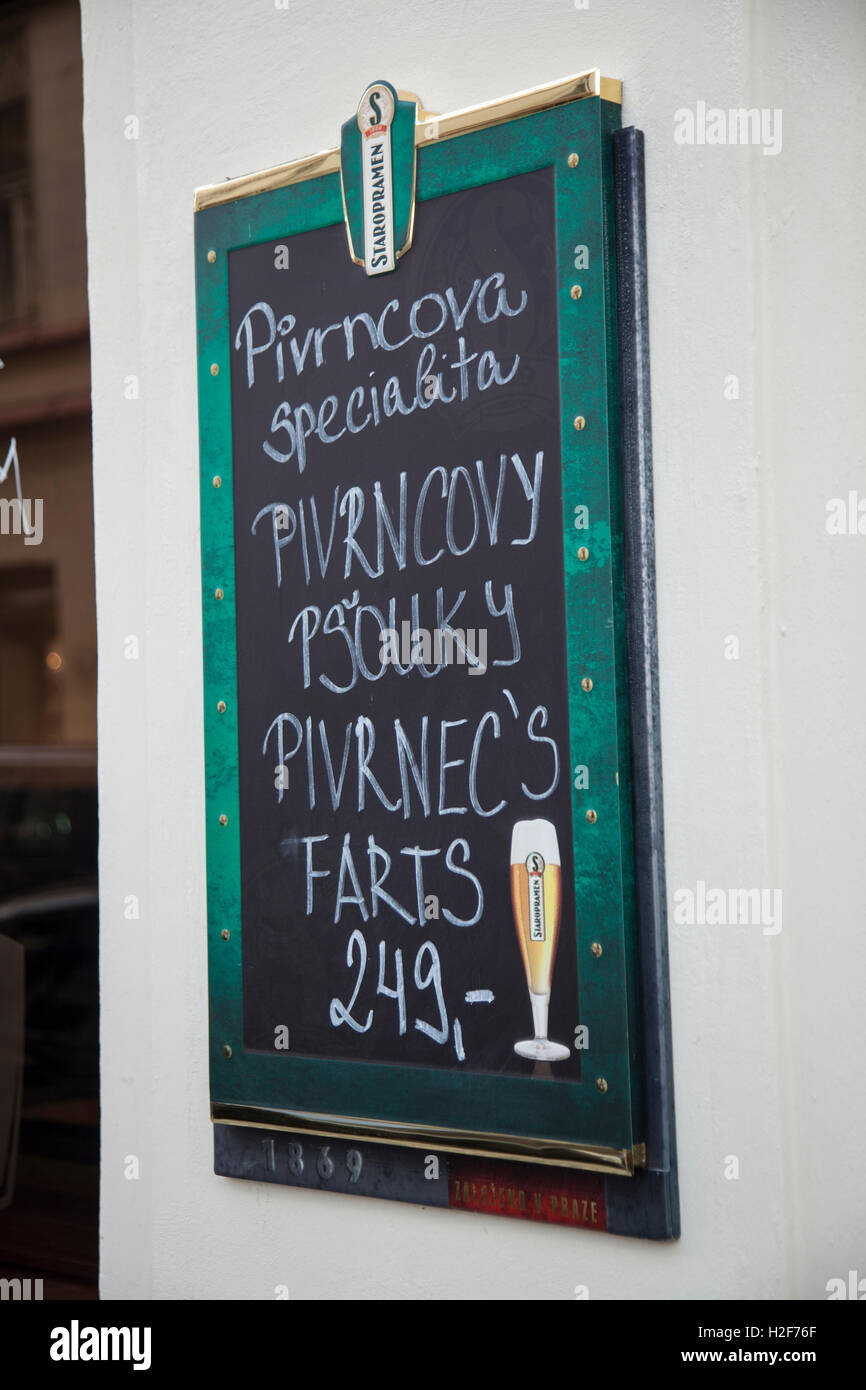 S
STAROPRAMEN
Pivrncova
specialita
PIVRNCOVY
PŠOUKY
PIVRNEC'S
FARTS
249,-
S
STAROPRAMEN
1869
ZALOŽENO V PRAZE
a
alamy
alamy
Image ID: H2F76F
www.alamy.com